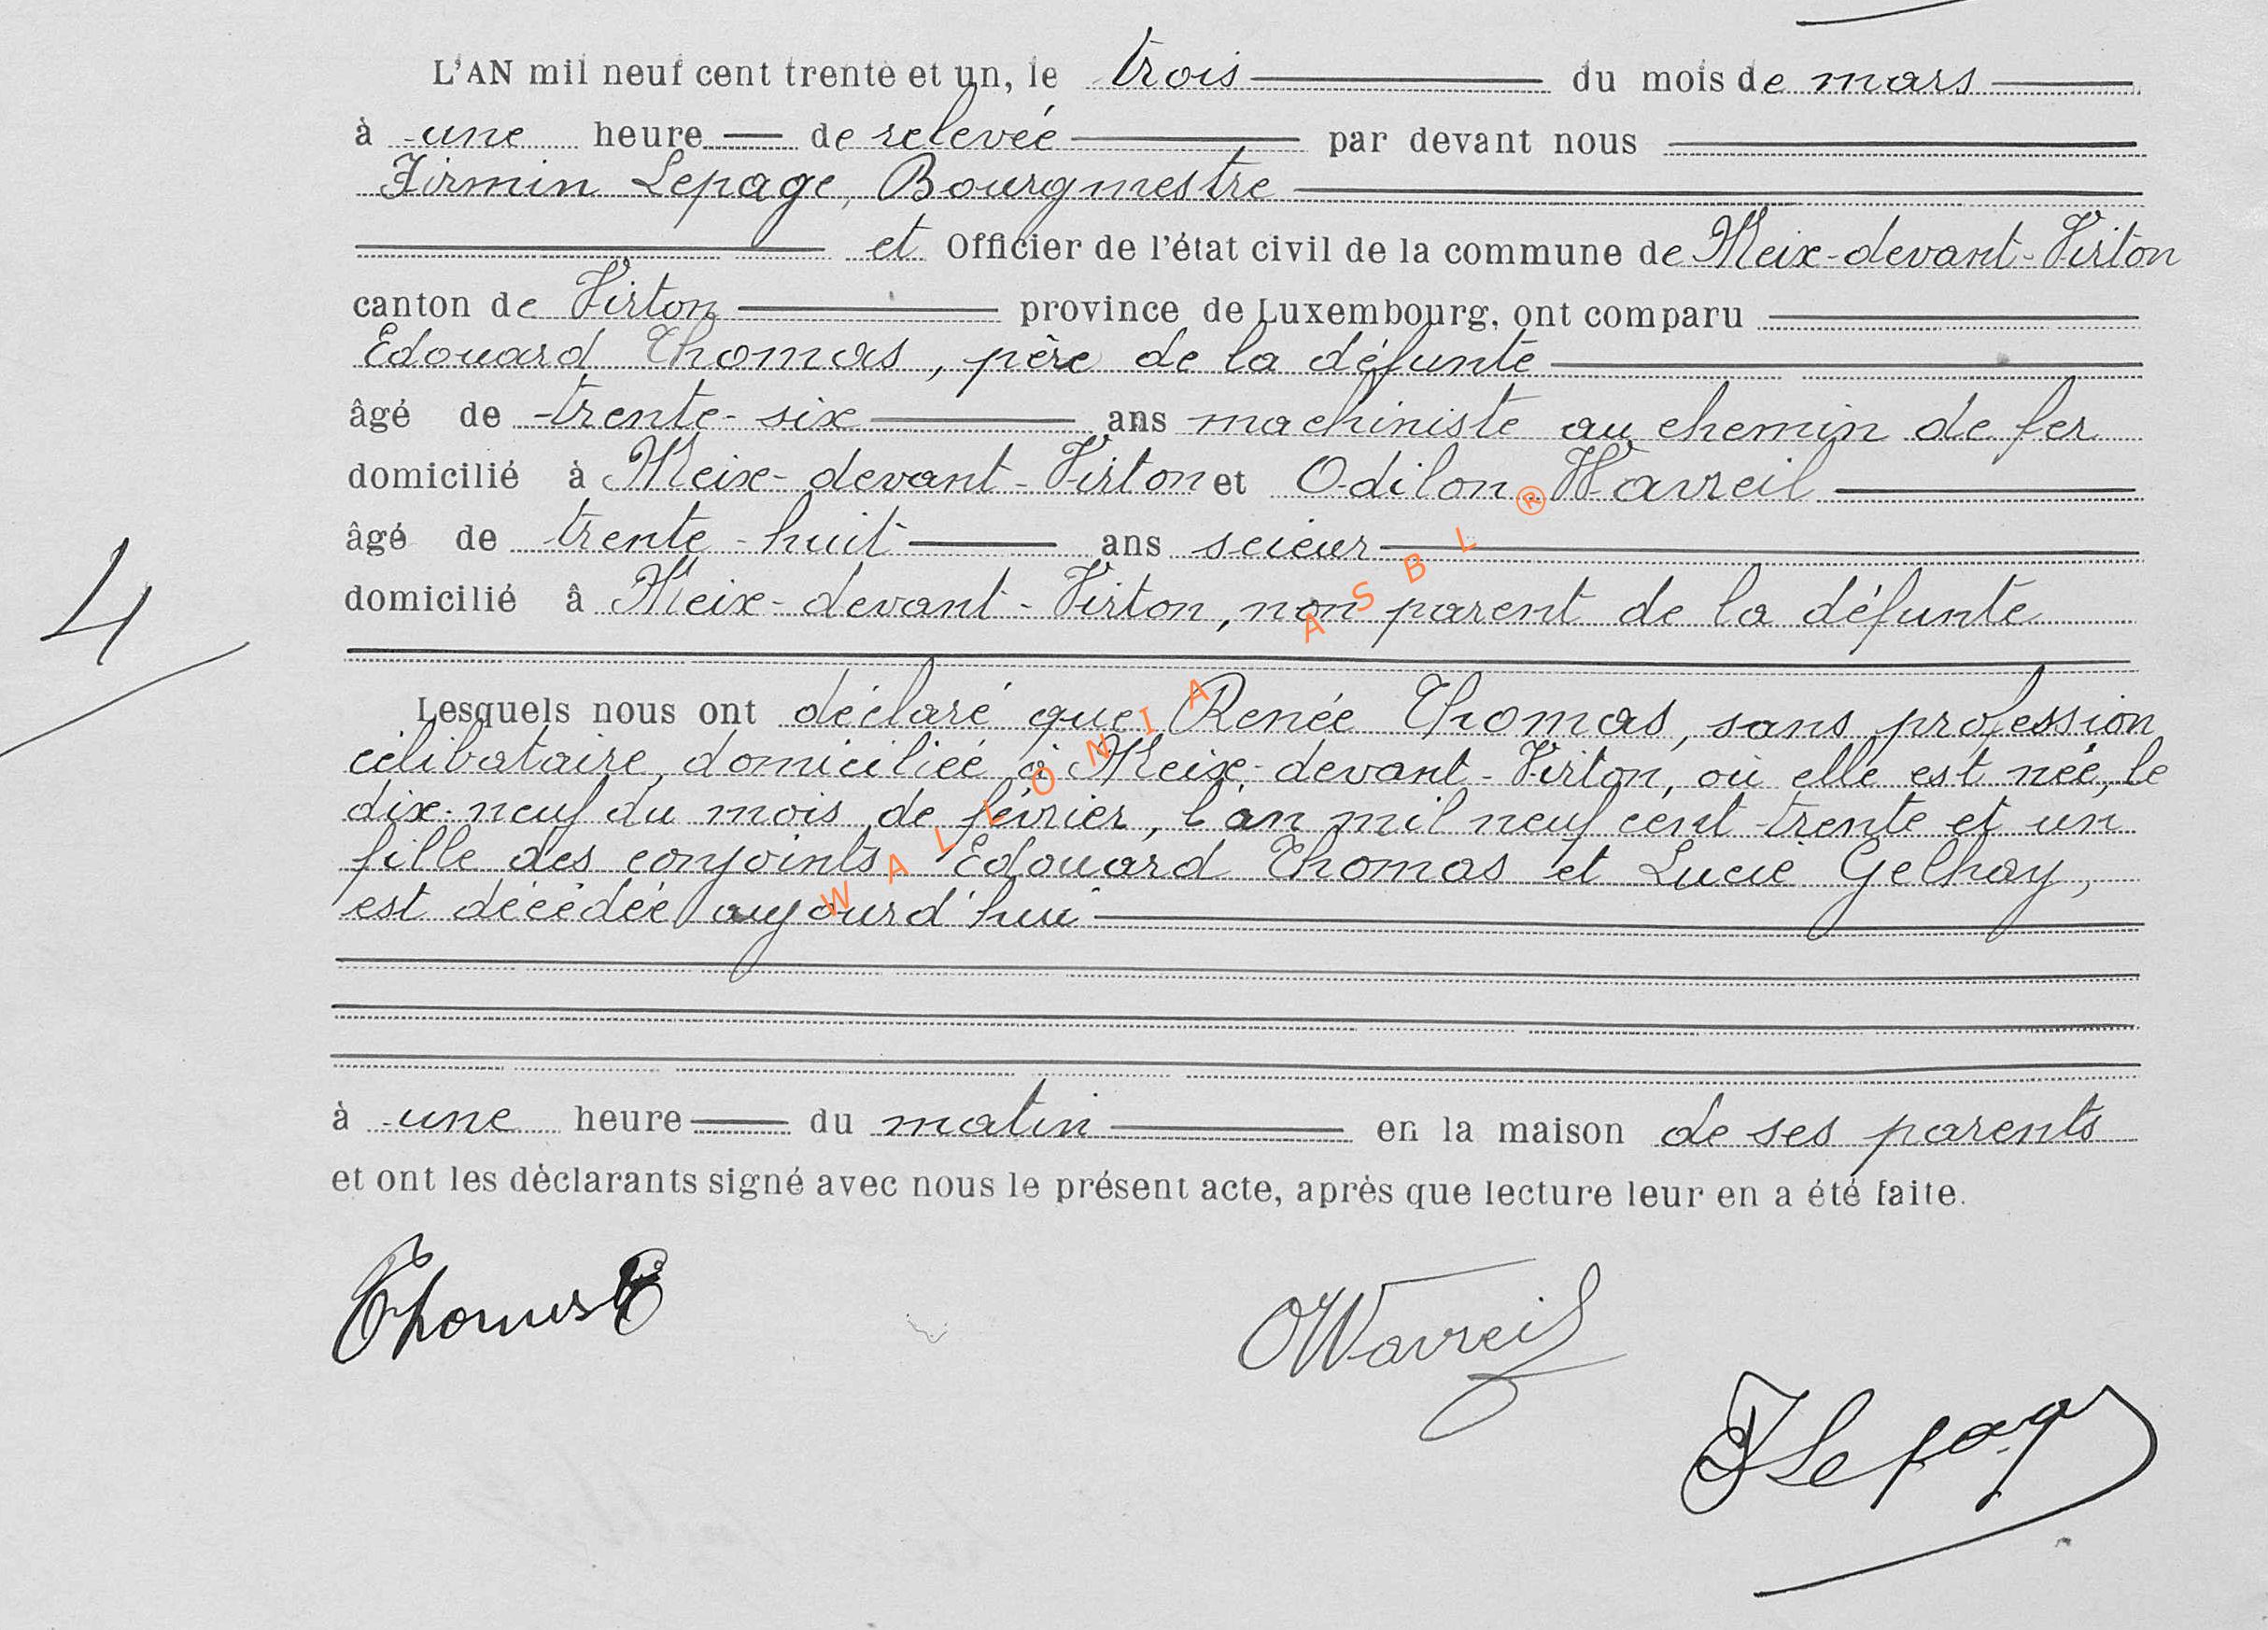 L'AN mil neuf cent trente et un, le trois du mois de mars
à une heure de relevée par devant nous
Firmin Lepage, Bourgmestre
et Officier de l'état civil de la commune de Meix-devant-Virton
canton de Virton province de Luxembourg, ont comparu
Edouard Thomas, père de la défunte
âgé de trente-six ans machiniste au chemin de fer
domicilié à Meix-devant-Virton et Odilon Wavreil
âgé de trente-huit ans scieur
domicilié â Meix-devant-Virton, non parent de la défunte
4
Lesquels nous ont déclaré que Renée Thomas, sans profession
célibataire, domiciliée à Meix-devant-Virton, où elle est née, le
dix-neuf du mois de février, l'an mil neuf cent trente et un
fille des conjoints Edouard Thomas et Lucie Gelhay,
est décédée aujourd'hui
à une heure du matin en la maison de ses parents
et ont les déclarants signé avec nous le présent acte, après que lecture leur en a été faite.
Thomas E
OWavreil
FLepage
WALLONIA ASBL ®